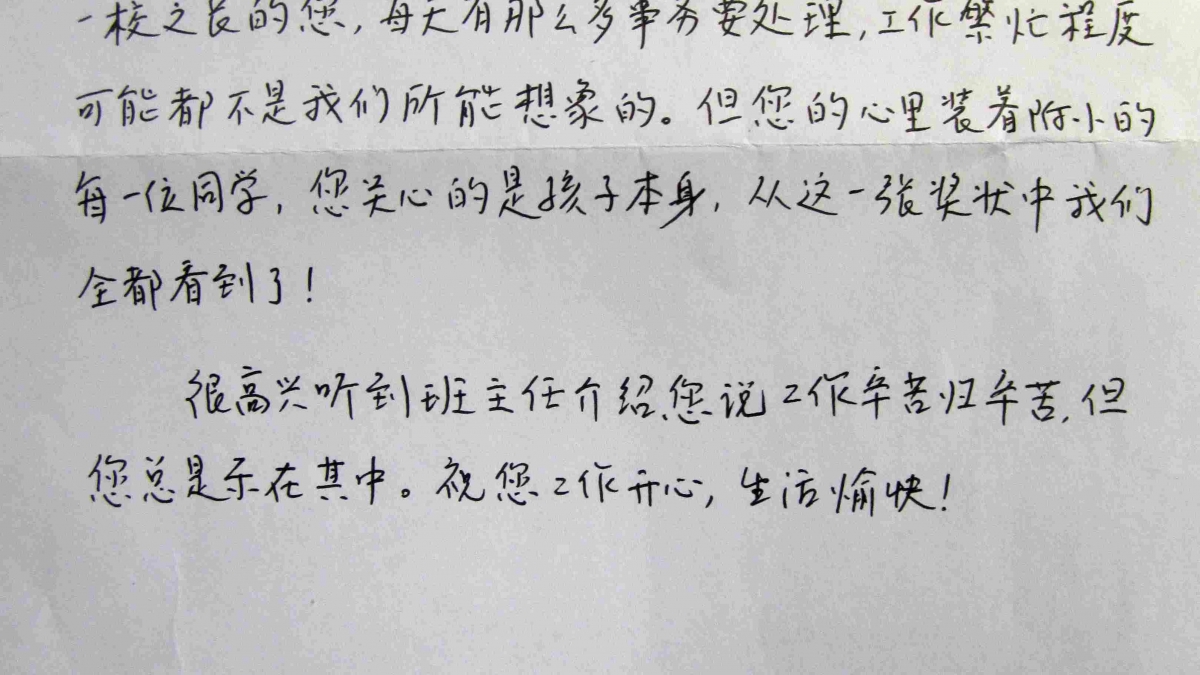 一校之长的您,每天有那么多事务要处理,工作繁忙程度
可能都不是我们所能想象的。但您的心里装着附小的
每一位同学,您关心的是孩子本身,从这一张奖状中我们
全都看到了!
很高兴听到班主任介绍您说工作辛苦归辛苦,但
您总是乐在其中。祝您工作开心,生活愉快!